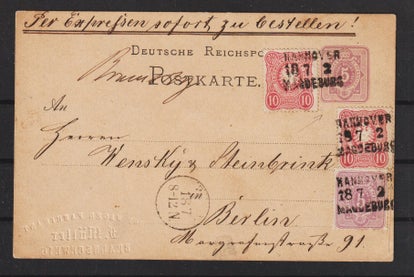 Per Expressen sofort zu bestellen!
DEUTSCHE REICHSPO
POSTKARTE.
HANNOVER
18 7 2
MAGDEBURG
5
10
An
Herren
HANNOVER
18 7 2
MAGDEBURG
10
Wensky & Steinbrink
HANNOVER
18 7 2
MAGDEBURG
5
18/7
8-12 N
Berlin
Margrafenstrasse 91.
BRAUNSCHWEIG